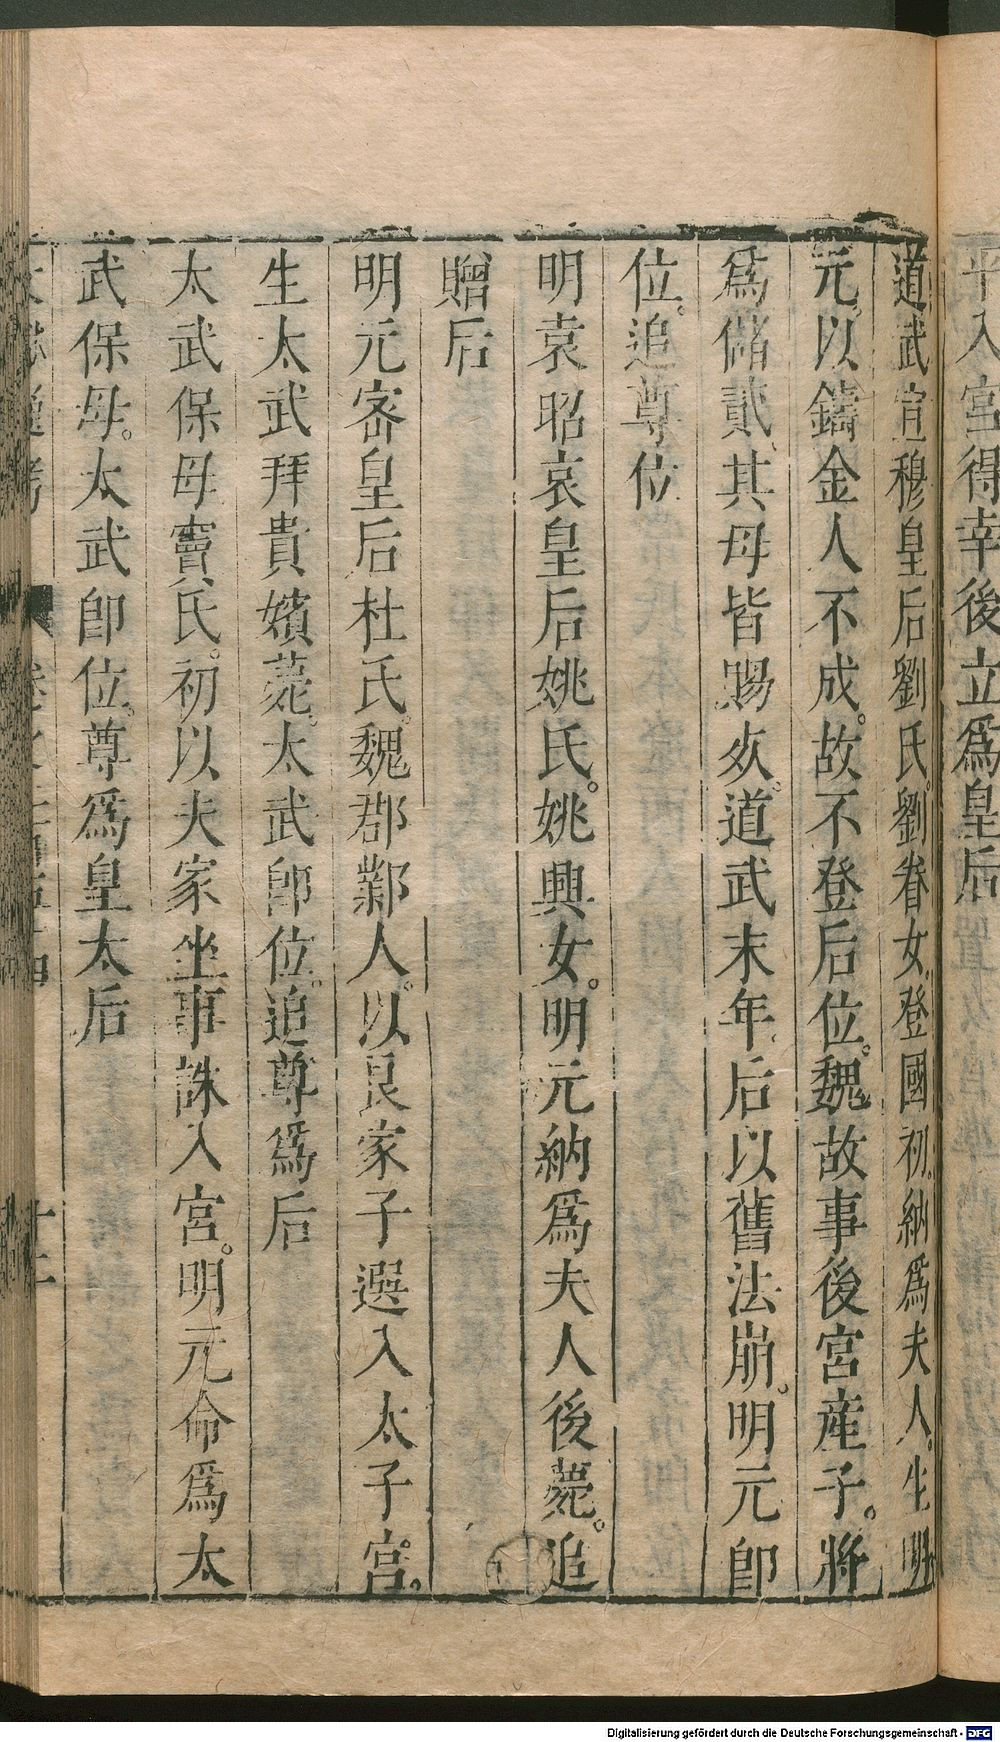 平入宮得幸後立爲皇后
道武宣穆皇后劉氏。劉眷女。登國初。納爲夫人。生明
元。以鑄金人不成。故不登后位。魏故事後宮産子。將
爲儲貳。其母皆賜死。道武末年。后以舊法崩。明元卽
位。追尊位
明袁昭哀皇后姚氏。姚興女。明元納爲夫人後薨。追
贈后
明元宻皇后杜氏。魏郡鄴人。以良家子選入太子宮。
生太武拜貴嬪薨。太武卽位。追尊爲后
太武保母竇氏。初以夫家坐事誅入宮。明元命爲太
武保母。太武卽位。尊爲皇太后
十二
Digitalisierung gefördert durch die Deutsche Forschungsgemeinschaft - DFG